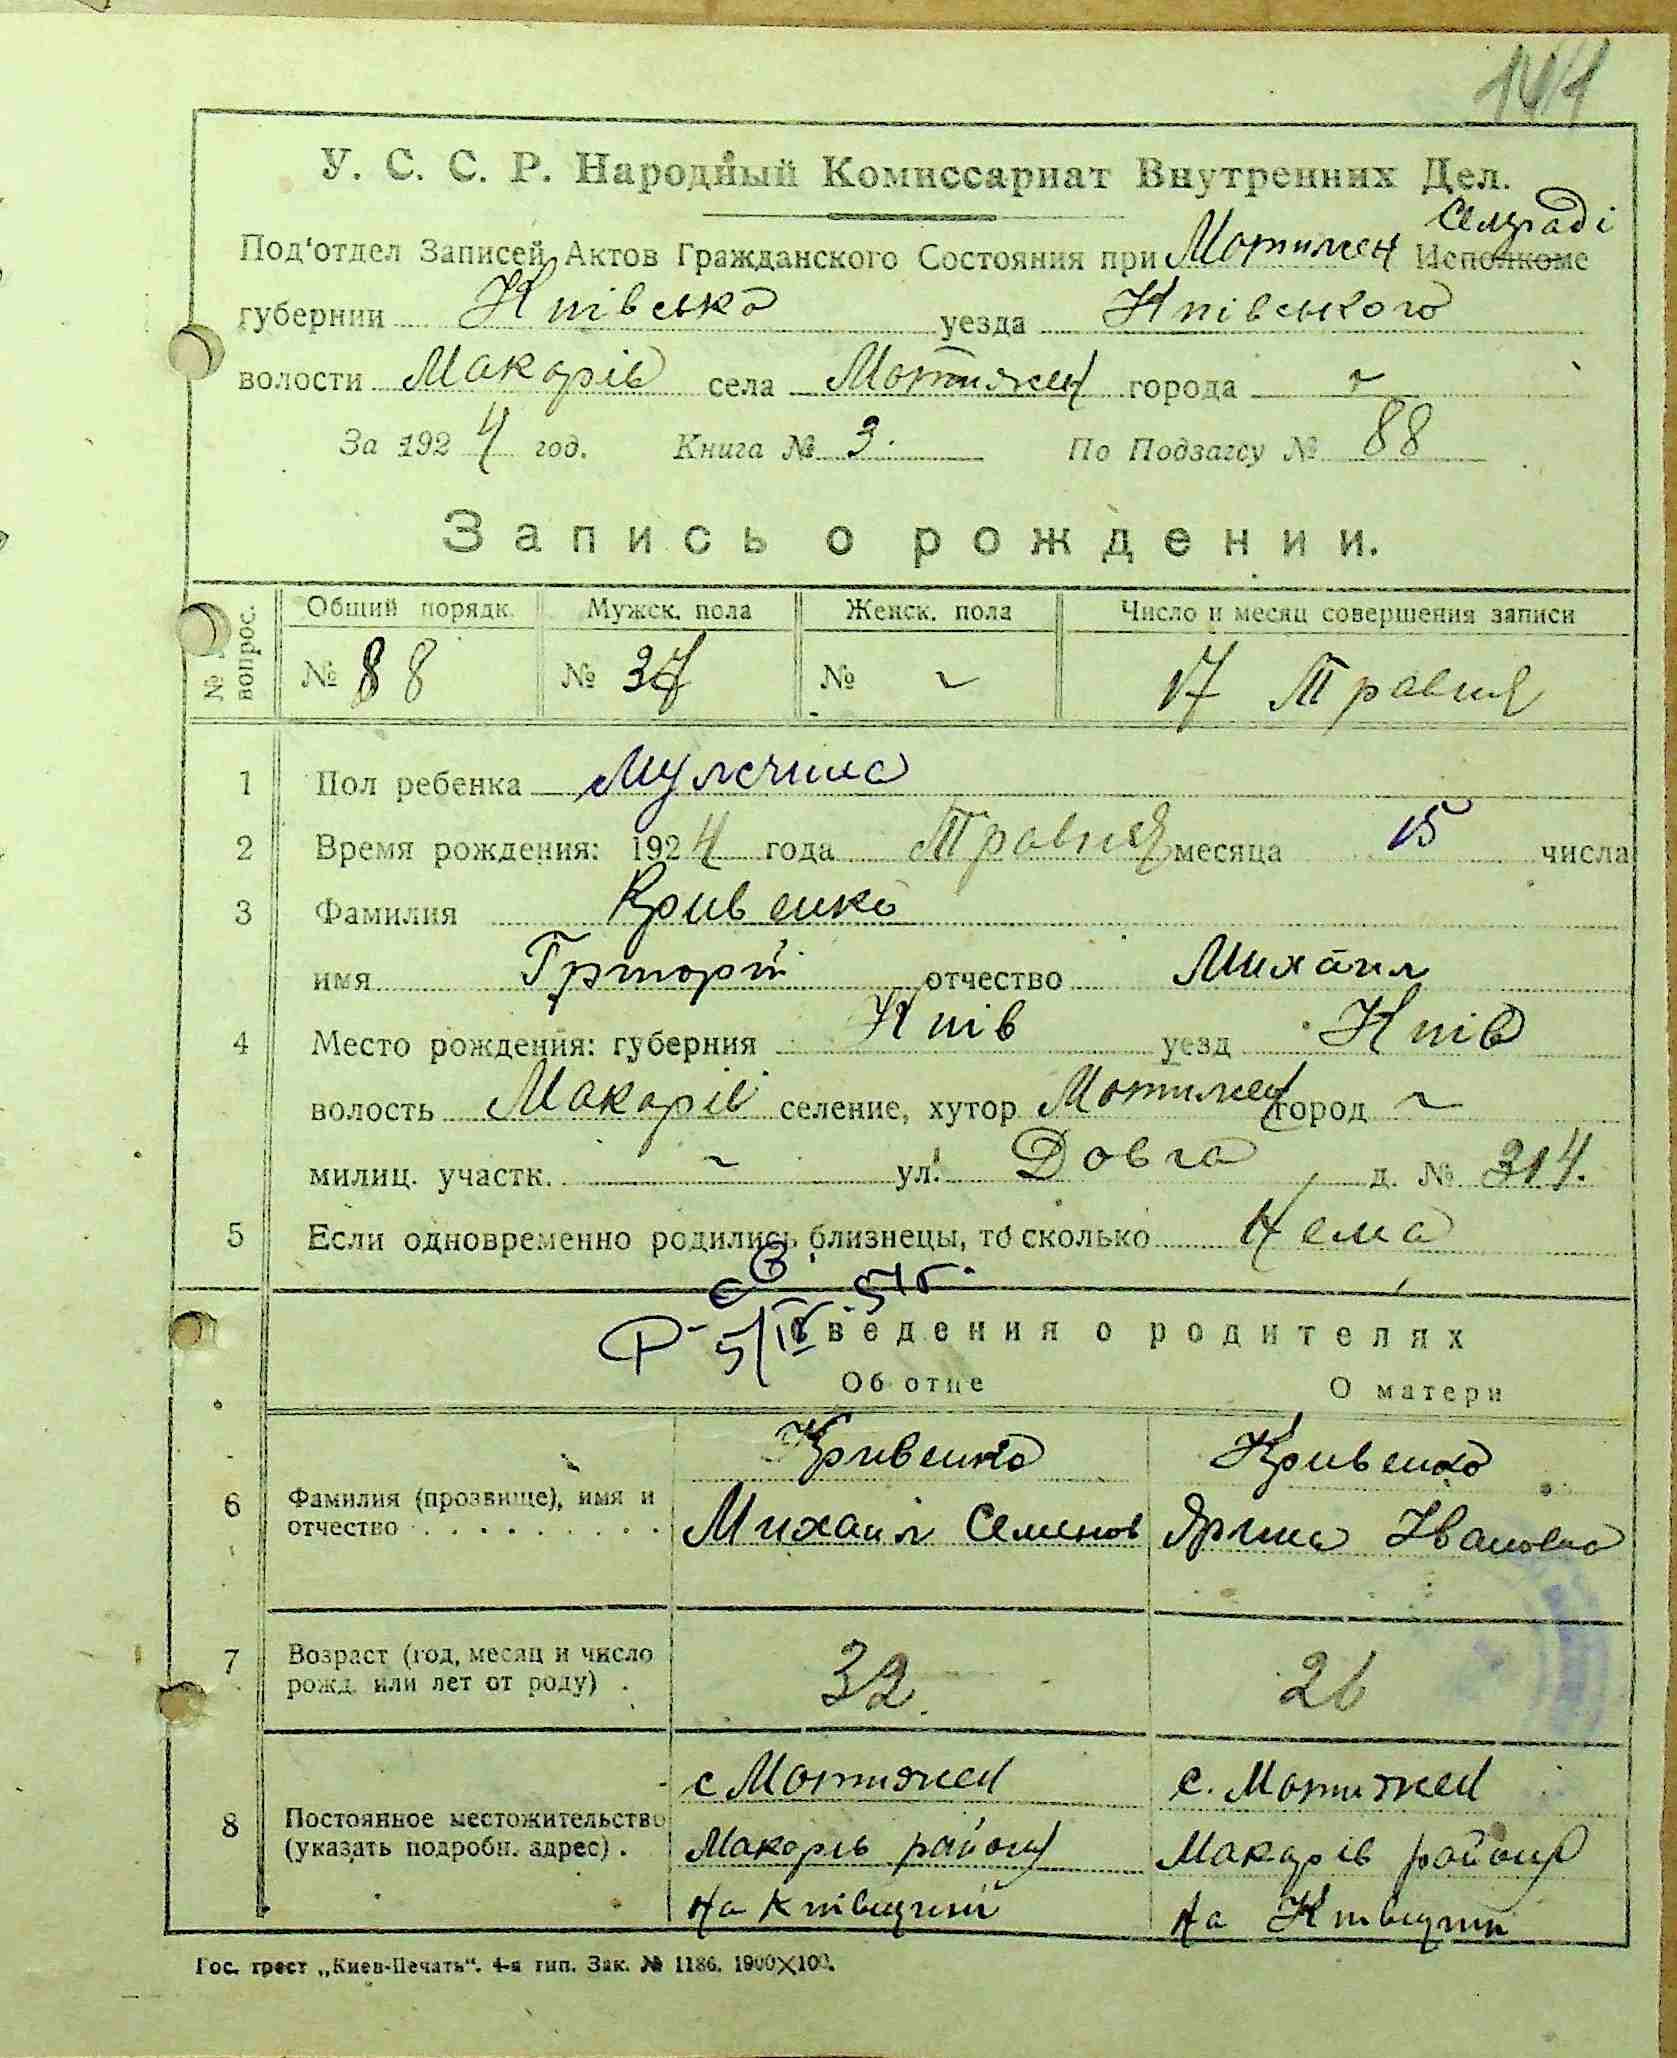 144
У. С. С. Р. Народный Комиссариат Внутренних Дел.
Сельраді
Под'отдел Записей Актов Гражданского Состояния при Мотижен Исполкоме
губернии Київсько уезда Київського
волости Макарів села Мотижен города ~
За 1924 год. Книга № 3. По Подзагсу № 88
Запись о рождении.
№ вопрос. Общий порядк. Мужск. пола Женск. пола Число и месяц совершения записи
№ 88 № 37 № ~ 17 Травня
1 Пол ребенка Мужчина
2 Время рождения: 1924 года Травня месяца 15 числа
3 Фамилия Кривенко
имя Григорій отчество Михаил
4 Место рождения: губерния Київ уезд Київ
волость Макарів селение, хутор Мотижен город ~
милиц. участк. ~ ул. Довга д. № 314.
5 Если одновременно родились близнецы, то сколько Нема
Р- 5/IV 51г.
Сведения о родителях
Об отце О матери
Кривенко Кривенко
6 Фамилия (прозвище), имя и отчество Михаил Семенов Ярина Ивановна
7 Возраст (год, месяц и число рожд. или лет от роду) . 32. 26
с Мотижен с. Мотижен
8 Постоянное местожительство (указать подробн. адрес) . Макарів району Макарів району
на Київщині на Київщині
Гос. трест „Киев-Печать". 4-я тип. Зак. № 1186. 1900×100.